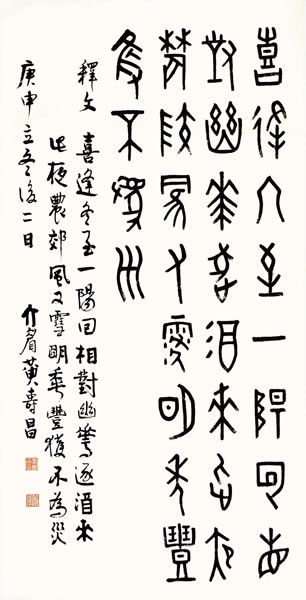 喜逢冬至一陽回相
對幽來此夜
農郊風又雪明年豐
獲不為災
釋文 喜逢冬至一陽回相對幽逐來
此夜農郊風又雪明年豐獲不為災
庚申立冬後二日 介眉黃壽昌